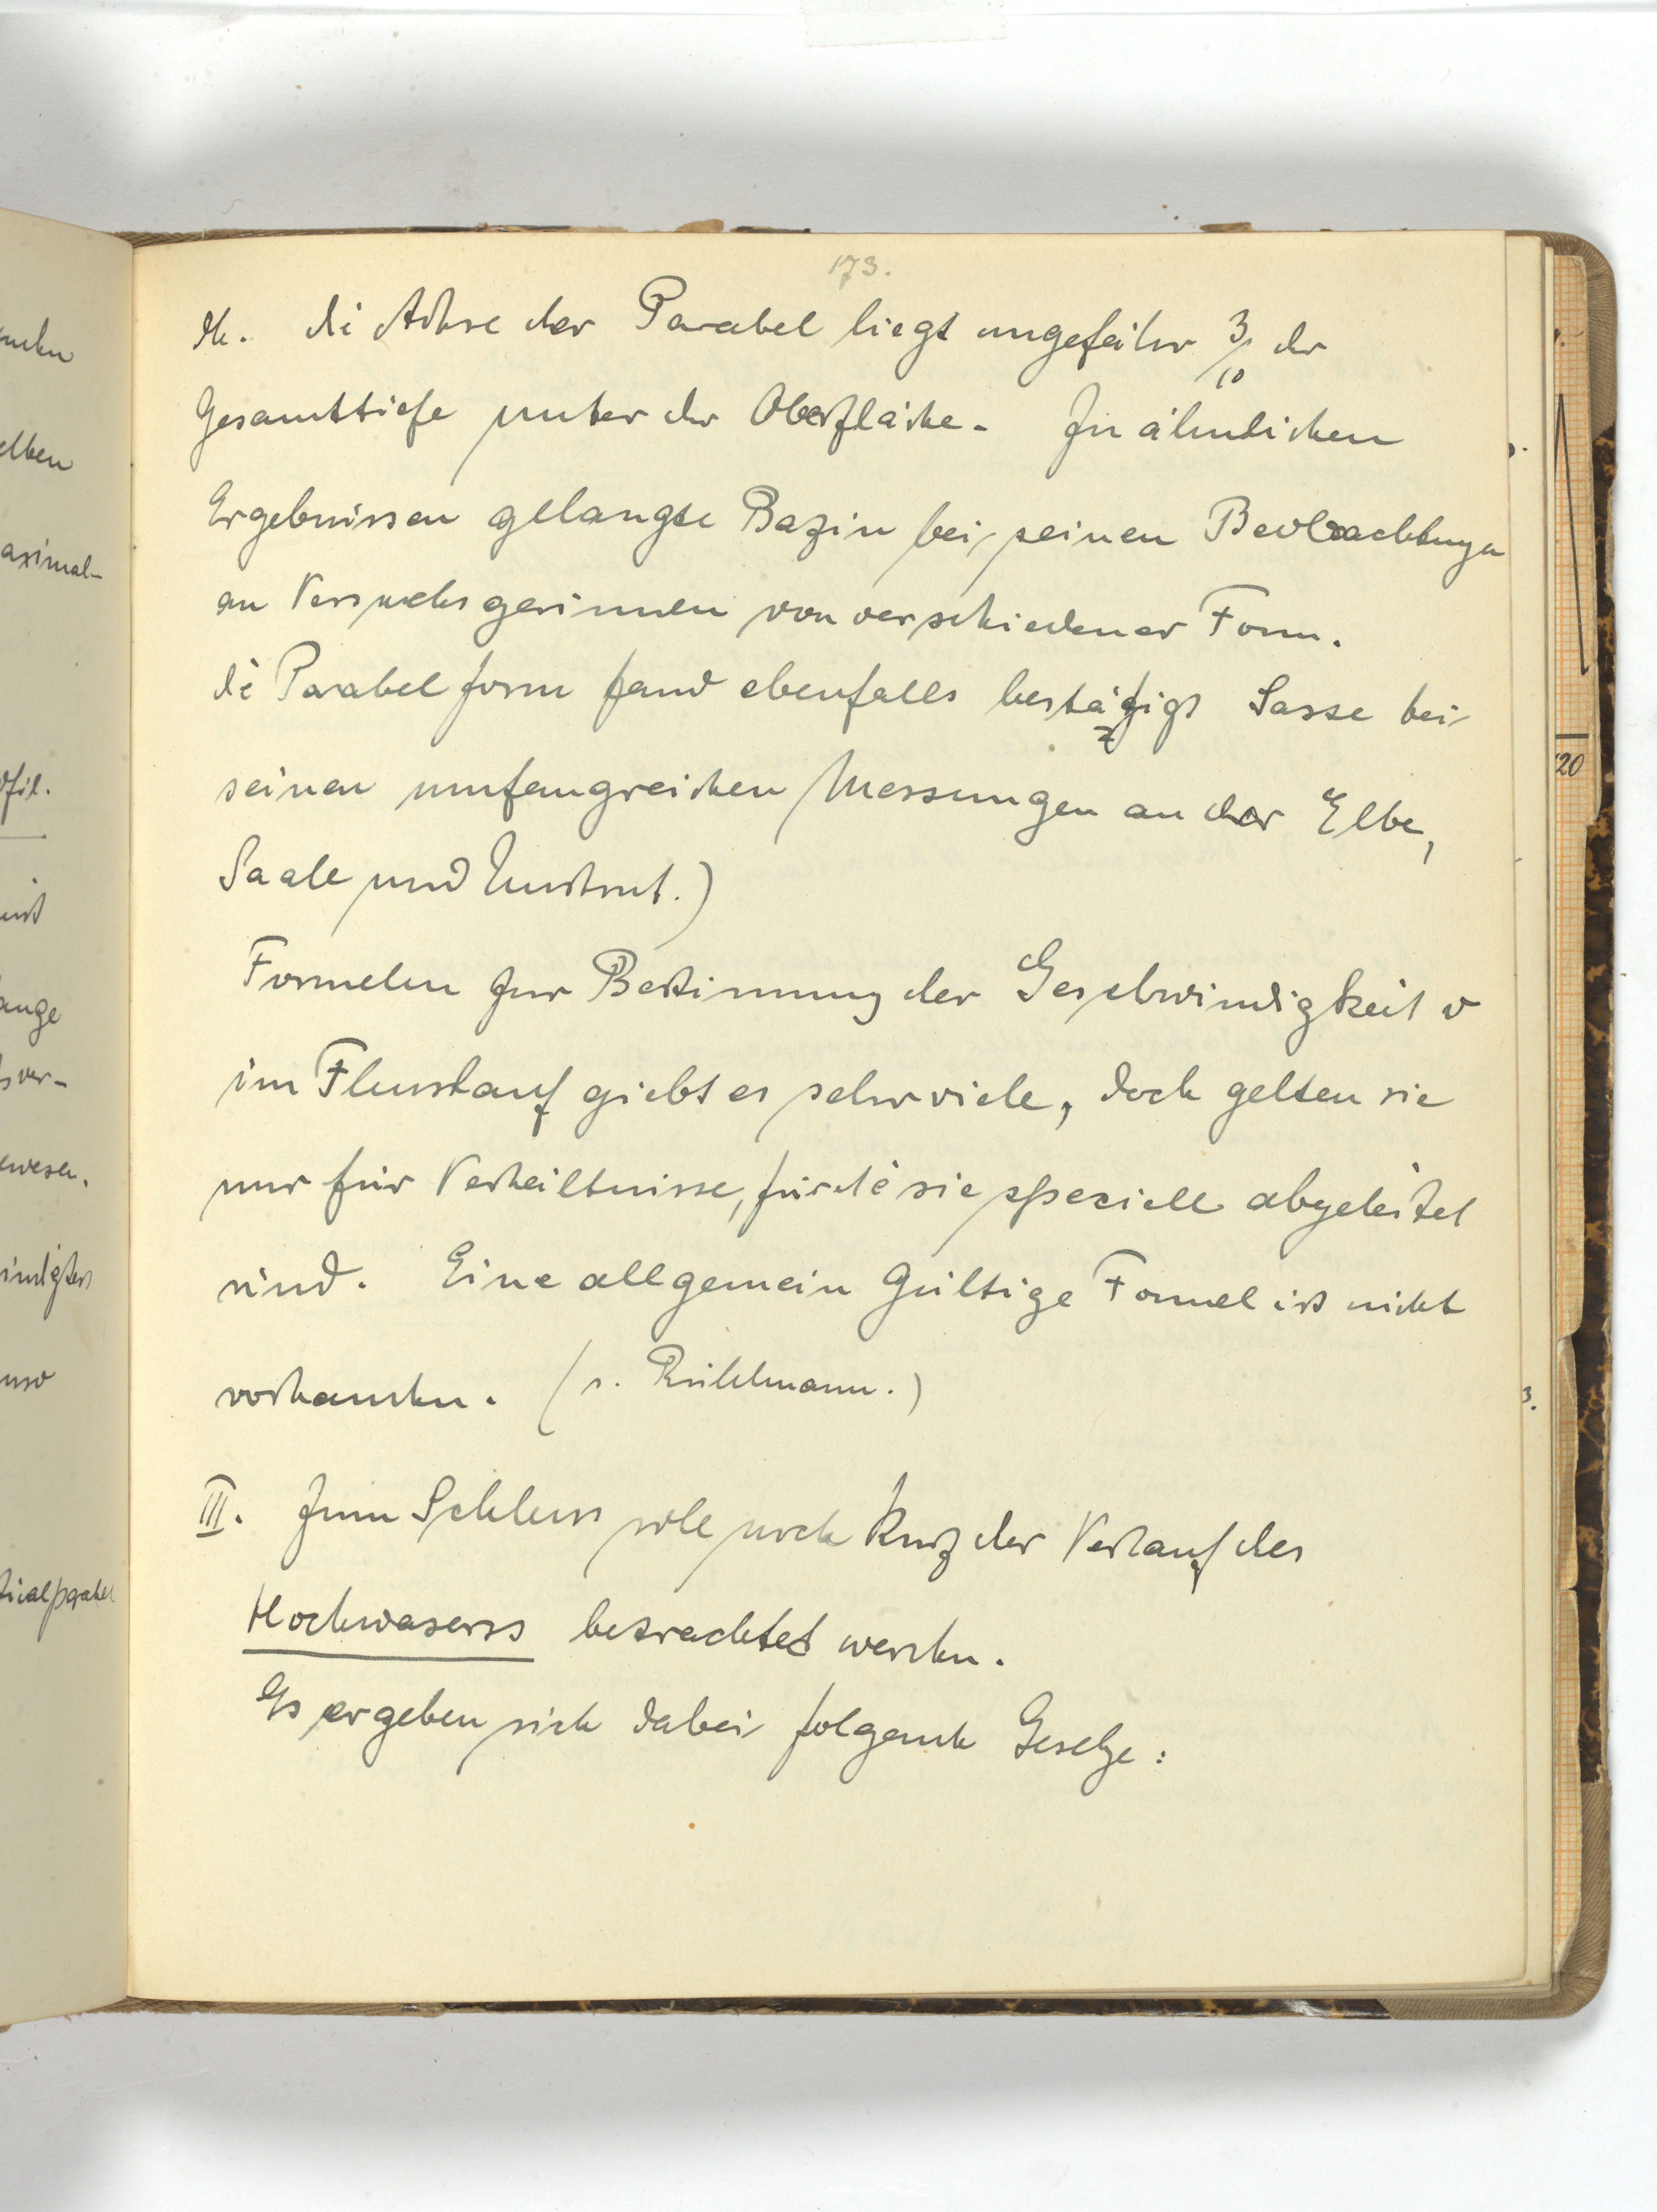 173.
de. die Achse der Parabel liegt ungefähr 3/10 der
Gesamttiefe unter der Oberfläche. Zu ähnlichen
Ergebnissen gelangte Bazin bei seinen Beobachtungen
an Versuchsgerinnen von verschiedener Form.
die Parabelform fand ebenfalls bestätigt Sasse bei
seinen umfangreichen Messungen an der Elbe,
Saale und Unstrut.)
Formeln zur Bestimmung der Geschwindigkeit v
im Flusslauf giebt es sehr viele, doch gelten sie
nur für Verhältnisse, für die sie speciell abgeleitet
sind. Eine allgemein Gültige Formel ist nicht
vorhanden. (s. Rühlmann.)
III. Zum Schluss soll noch kurz der Verlauf des
Hochwasers betrachtet werden.
Es ergeben sich dabei folgende Gesetze: